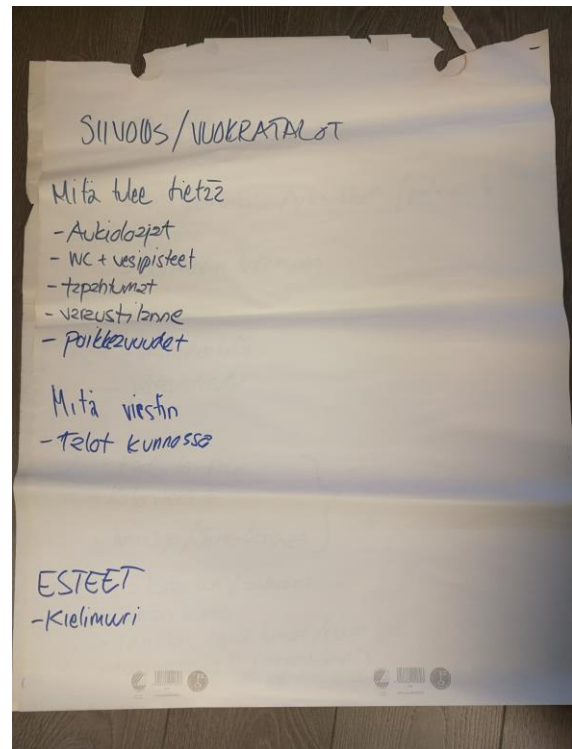 SIIVOUS/VUOKRATALOT
Mitä tulee tietää
- Aukioloajat
- WC + vesipisteet
- tapahtumat
- varaustilanne
- poikkeavuudet
Mitä viestin
- talot kunnossa
ESTEET
- Kielimuuri